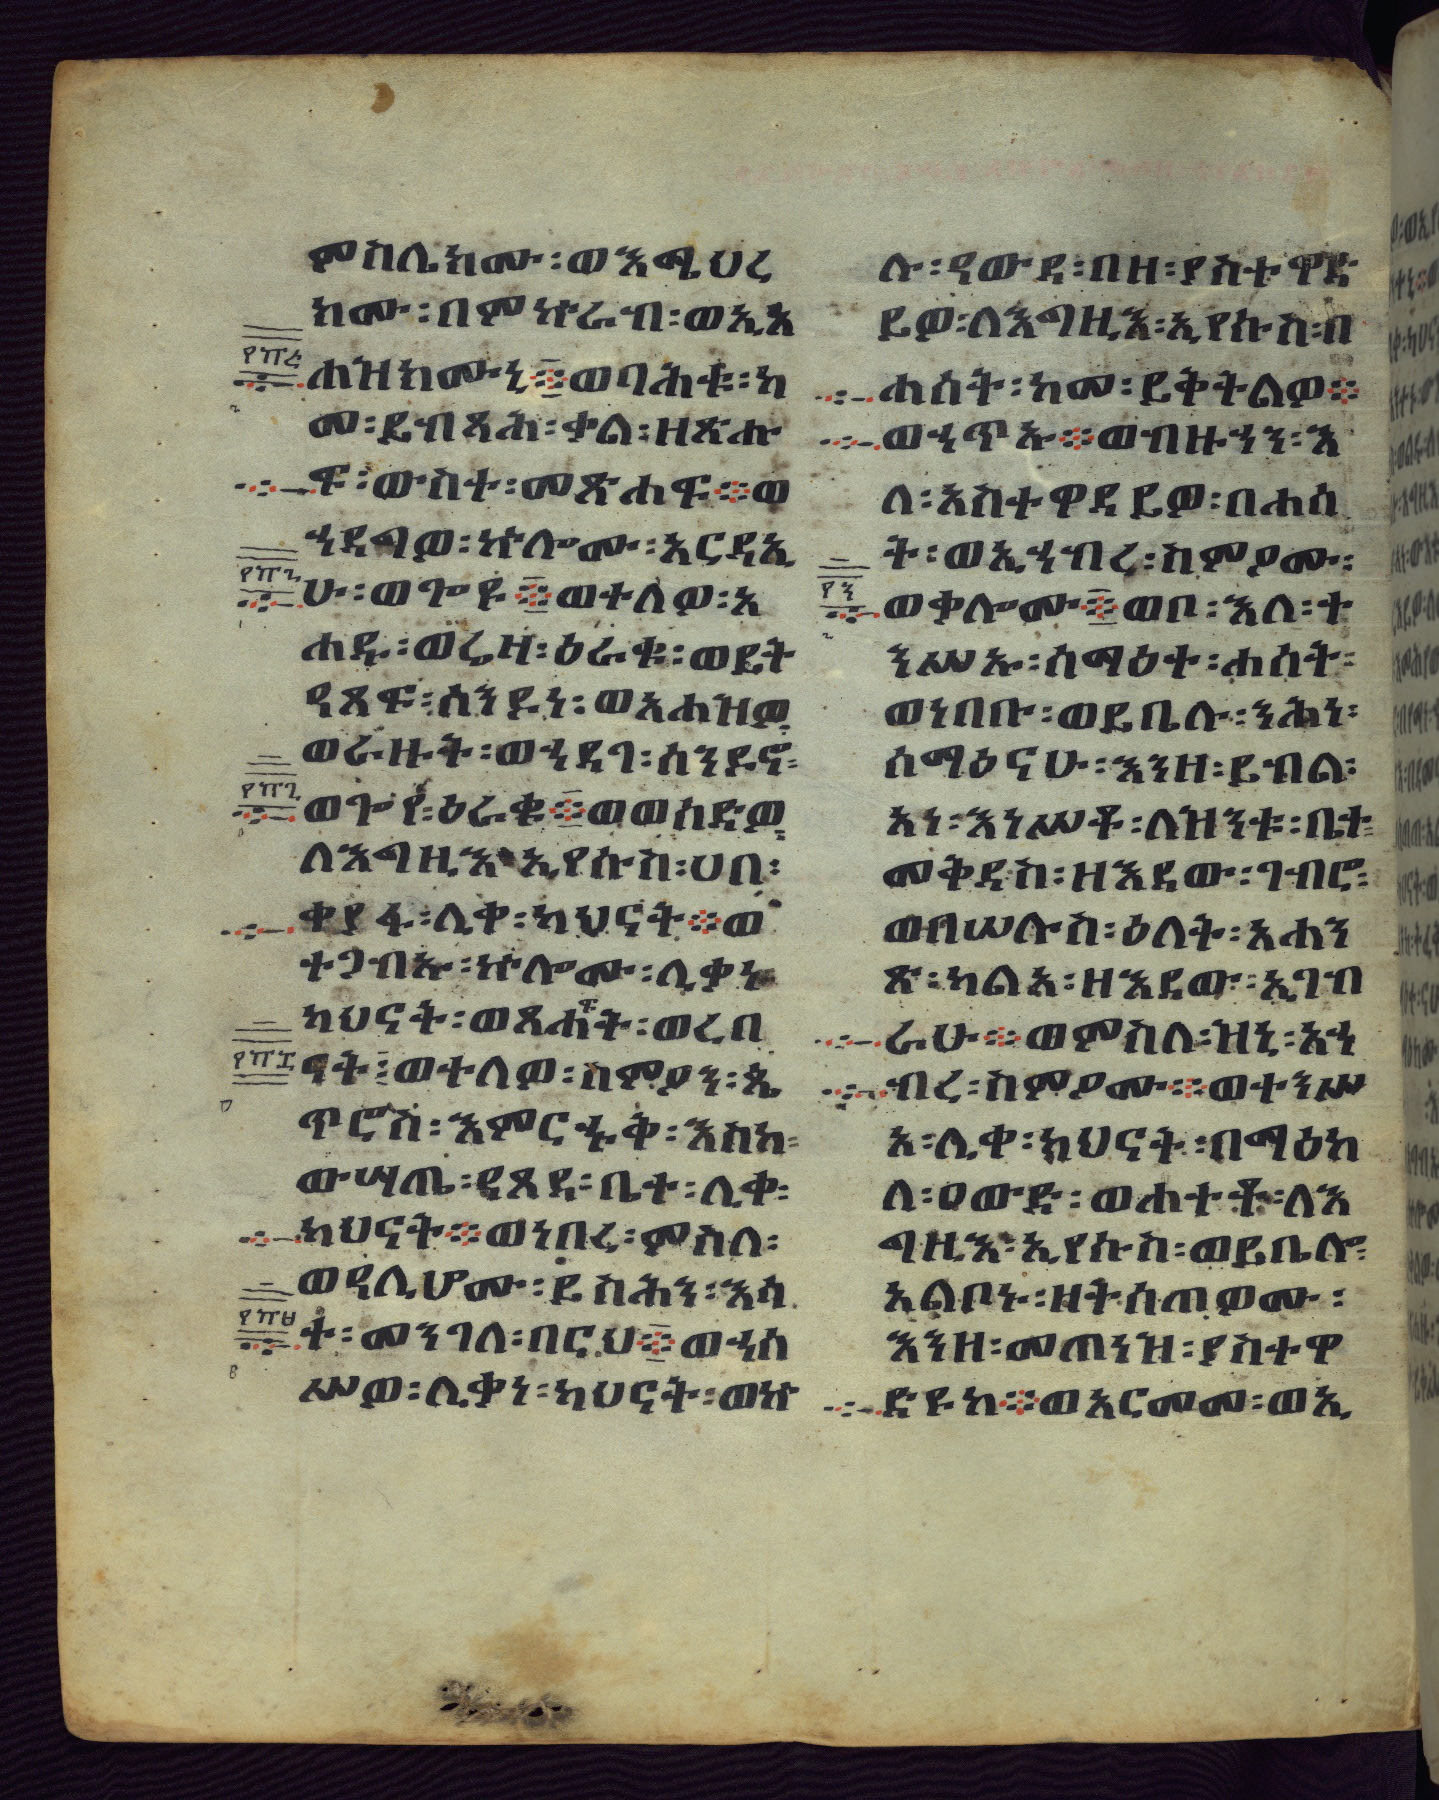 ምስሌክሙ፡ወእሜህረ
ክሙ፡በምኵራብ፡ወኢአ
፻፹፩
ሐዝክሙኒ፨ወባሕቱ፡ከ
መ፡ይብጻሕ፡ቃል፡ዘጽሑ
ፍ፡ውስተ፡መጽሐፍ፨ወ
ኀደግዎ፡ኵሎሙ፡አርዳኢ
፻፹፪
ሁ፡ወጐዩ፨ወተለዎ፡አ
ሐዱ፡ወሬዛ፡ዕራቁ፡ወይት
ዓጸፍ፡ሰንዶነ፡ወአሐዝዎ
ወራዙት፡ወኀደገ፡ሰንዶኖ፡
፻፹፫
ወጐየ፡ዕራቁ፨ወወሰድዎ
ለእግዚእ፡ኢየሱስ፡ኀበ፡
ቀያፋ፡ሊቀ፡ካህናት፨ወ
ተጋብኡ፡ኵሎሙ፡ሊቃነ
ካህናት፡ወጸሐፍት፡ወረበ
፻፹፬
ናት፡ወተለዎ፡ስምዖን፡ጴ
ጥሮስ፡እምርኁቅ፡እስከ፡
ውሣጤ፡ዐጸደ፡ቤተ፡ሊቀ፡
ካህናት፨ወነበረ፡ምስለ፡
ወዓሊሆሙ፡ይስሕን፡እሳ
፻፹፭
ተ፡መንገለ፡በርህ፨ወኀሠ
ሥዎ፡ሊቃነ፡ካህናት፡ወኵ
ሉ፡ዓውድ፡በዘ፡ያስተዋድ
ይዎ፡ለእግዚእ፡ኢየሱስ፡በ
ሐሰት፡ከመ፡ይቅትልዎ፨
ወኀጥኡ፨ወብዙኃን፡እ
ለ፡አስተዋደይዎ፡በሐሰ
ት፡ወኢኀብረ፡ስምዖሙ፡
ወቃሎሙ፨ወቦ፡እለ፡ተ
ንሥኡ፡ሰማዕተ፡ሐሰት፡
ወነበቡ፡ወይቤሉ፡ንሕነ፡
ሰማዕናሁ፡እንዘ፡ይብል፡
አነ፡እነሥቶ፡ለዝንቱ፡ቤተ፡
መቅደስ፡ዘእደው፡ገብሮ፡
ወበሠሉስ፡ዕለት፡አሐን
ጽ፡ካልአ፡ዘእደው፡ኢገብ
ራሁ፨ወምስለ፡ዝኒ፡አኀ
ብረ፡ስምዖሙ፨ወተንሥ
አ፡ሊቀ፡ካህናት፡በማዕከ
ለ፡ዐውድ፡ወሐተቶ፡ለእ
ግዚእ፡ኢየሱስ፡ወይቤሎ፡
አልቦኑ፡ዘትሰጠዎሙ፡
እንዘ፡መጠነዝ፡ያስተዋ
ድዩከ፨ወአርመመ፡ወኢ